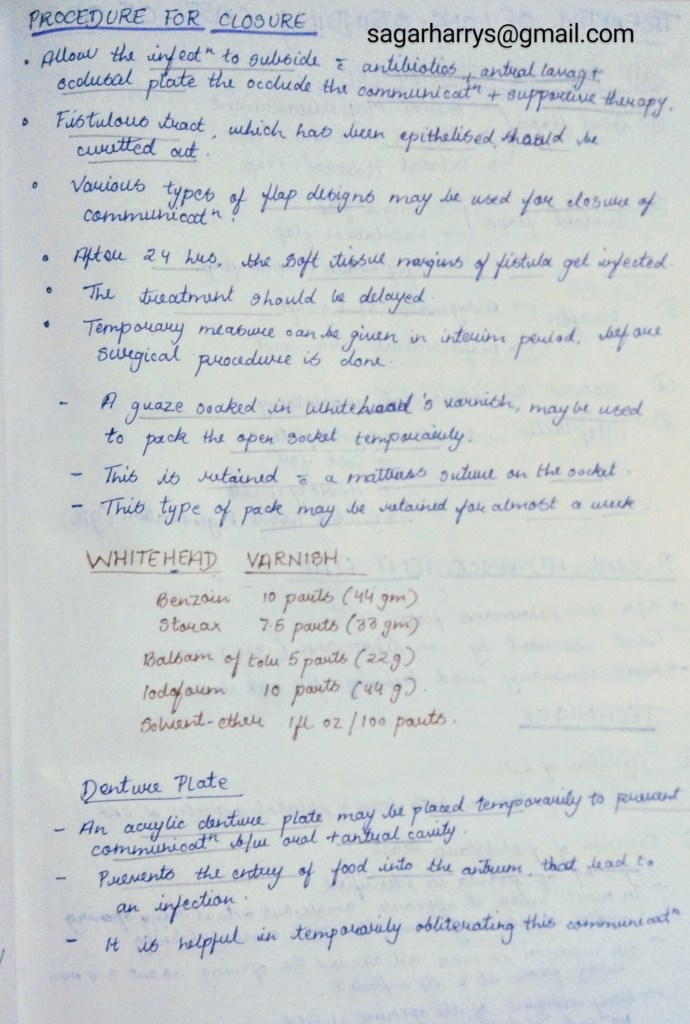 PROCEDURE FOR CLOSURE
sagarharrys@gmail.com
• Allow the infectⁿ to subside c̄ antibiotics + antral lavage +
occlusal plate the occlude the communicatⁿ + supportive therapy.
• Fistulous tract, which has been epithelised, should be
curetted out.
• Various types of flap designs may be used for closure of
communicatⁿ.
• After 24 hrs, the soft tissue margins of fistula get infected.
• The treatment should be delayed.
• Temporary measure can be given in interim period, before
surgical procedure is done.
- A guaze soaked in Whitehead's varnish, may be used
to pack the open socket temporarily.
- This is retained c̄ a mattress suture on the socket.
- This type of pack may be retained for almost a week
WHITEHEAD VARNISH
Benzoin 10 parts (44 gm)
Storax 7.5 parts (33 gm)
Balsam of tolu 5 parts (22g)
Iodoform 10 parts (44 g).
Solvent-ether 1fl oz/100 parts.
Denture Plate
- An acrylic denture plate may be placed temporarily to prevent
communicatⁿ b/w oral + antral cavity.
- Prevents the entry of food into the antrum, that lead to
an infection.
- It is helpful in temporarily obliterating this communicatⁿ